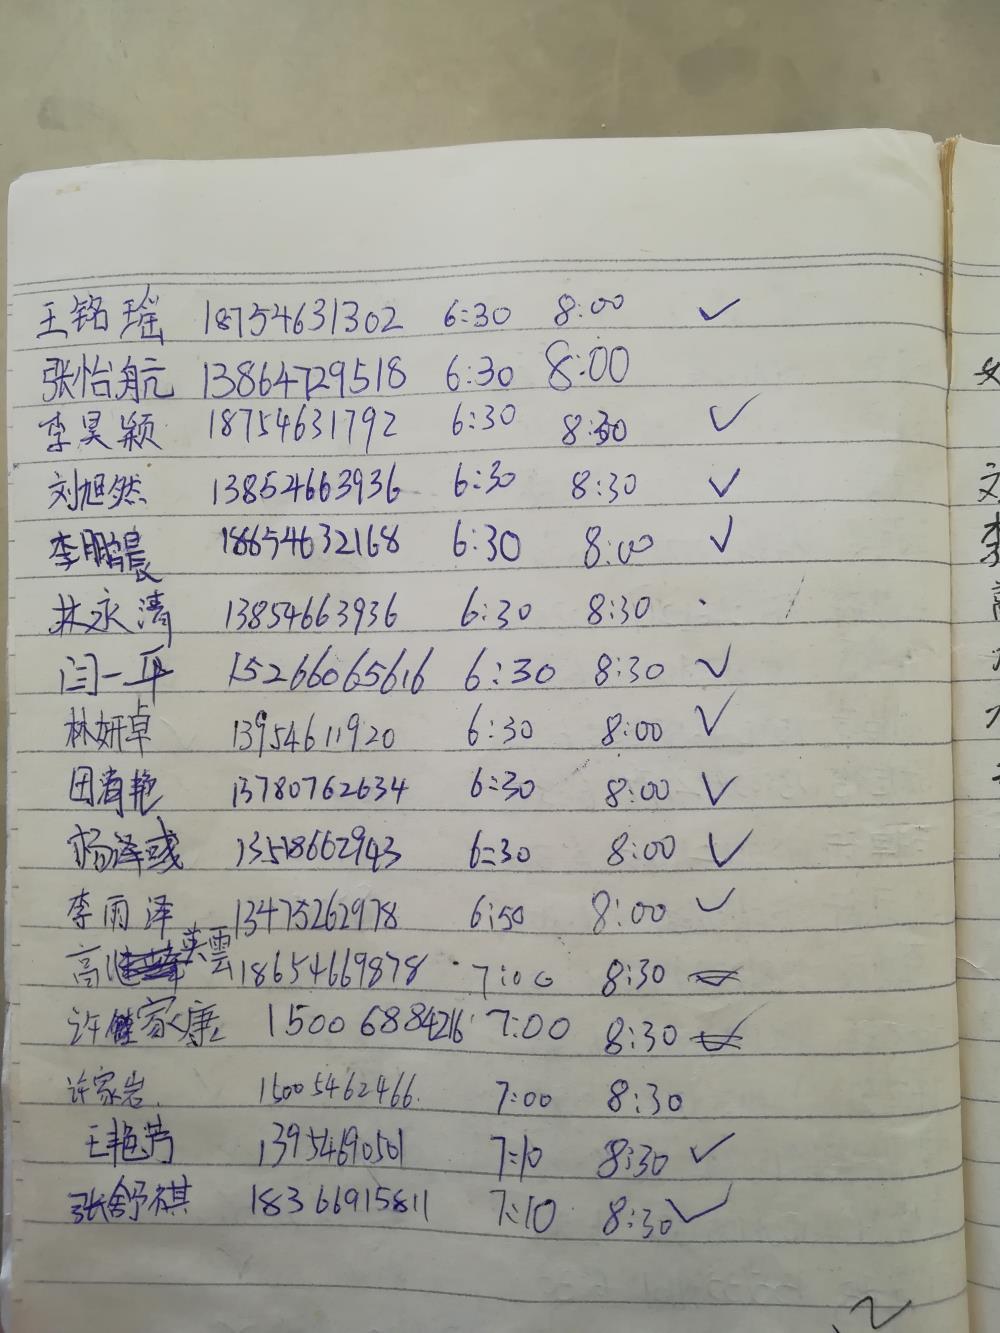 王铭瑶 18754631302 6:30 8:00 ✓
张怡航 13864729518 6:30 8:00
李昊颖 18754631792 6:30 8:30 ✓
刘旭然 13854663936 6:30 8:30 ✓
李鹏晨 18654632168 6:30 8:00 ✓
林永清 13854663936 6:30 8:30
闫一平 15266065616 6:30 8:30 ✓
林妍卓 13954611920 6:30 8:00 ✓
田消艳 13780762634 6:30 8:00 ✓
杨泽彧 13518662943 6:30 8:00 ✓
李雨泽 13475262978 6:50 8:00 ✓
高英雲 18654669878 7:00 8:30
许家康 15006884216 7:00 8:30
许家岩 15005462466 7:00 8:30
王艳芳 13954690501 7:10 8:30 ✓
张舒祺 18366915811 7:10 8:30 ✓